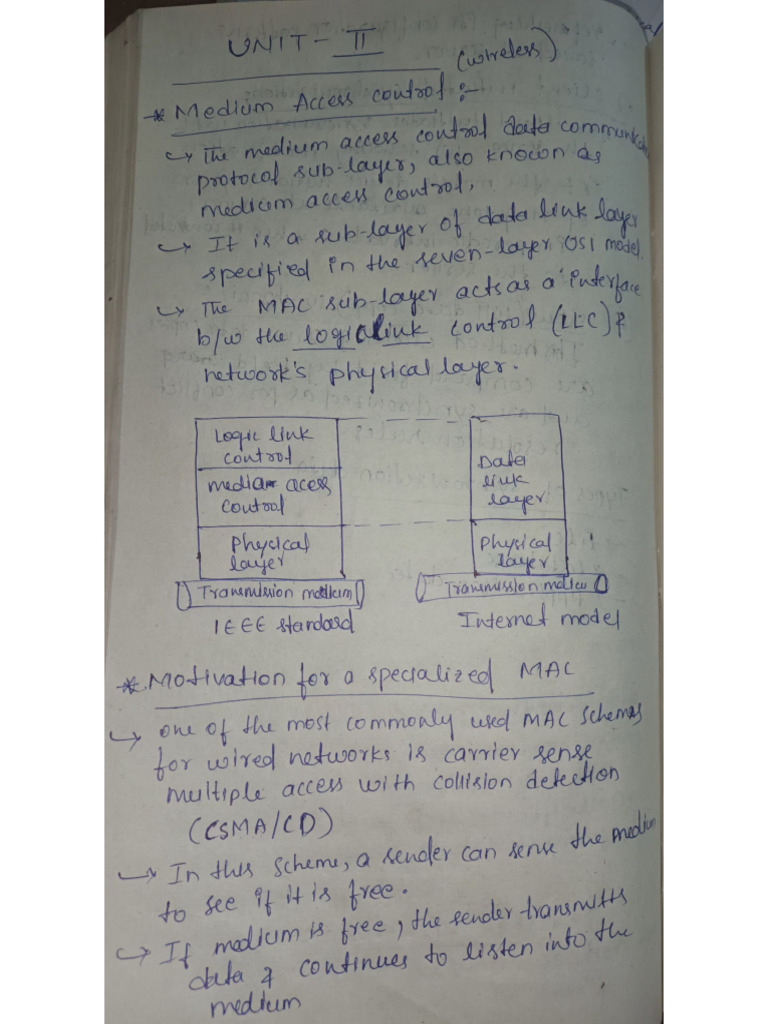 UNIT - II
(wireless)
* Medium Access control :-
↪ The medium access control data communicati
protocol sub-layer, also known as
medium access control.
↪ It is a sub-layer of data link layer
specified in the seven-layer OSI model.
↪ The MAC sub-layer acts as a interface
b/w the logicalink control (LLC) &
network's physical layer.
Logic link
control
media acess
control
Physical
layer
Transmission medium
IEEE standard
Data
link
layer
Physical
layer
Transmission mediu
Internet model
* Motivation for a specialized MAC
↪ one of the most commonly used MAC schemas
for wired networks is carrier sense
multiple access with collision detection
(CSMA/CD)
↪ In this scheme, a sender can sense the medium
to see if it is free.
↪ If medium is free, the sender transmitts
data & continues to listen into the
medium